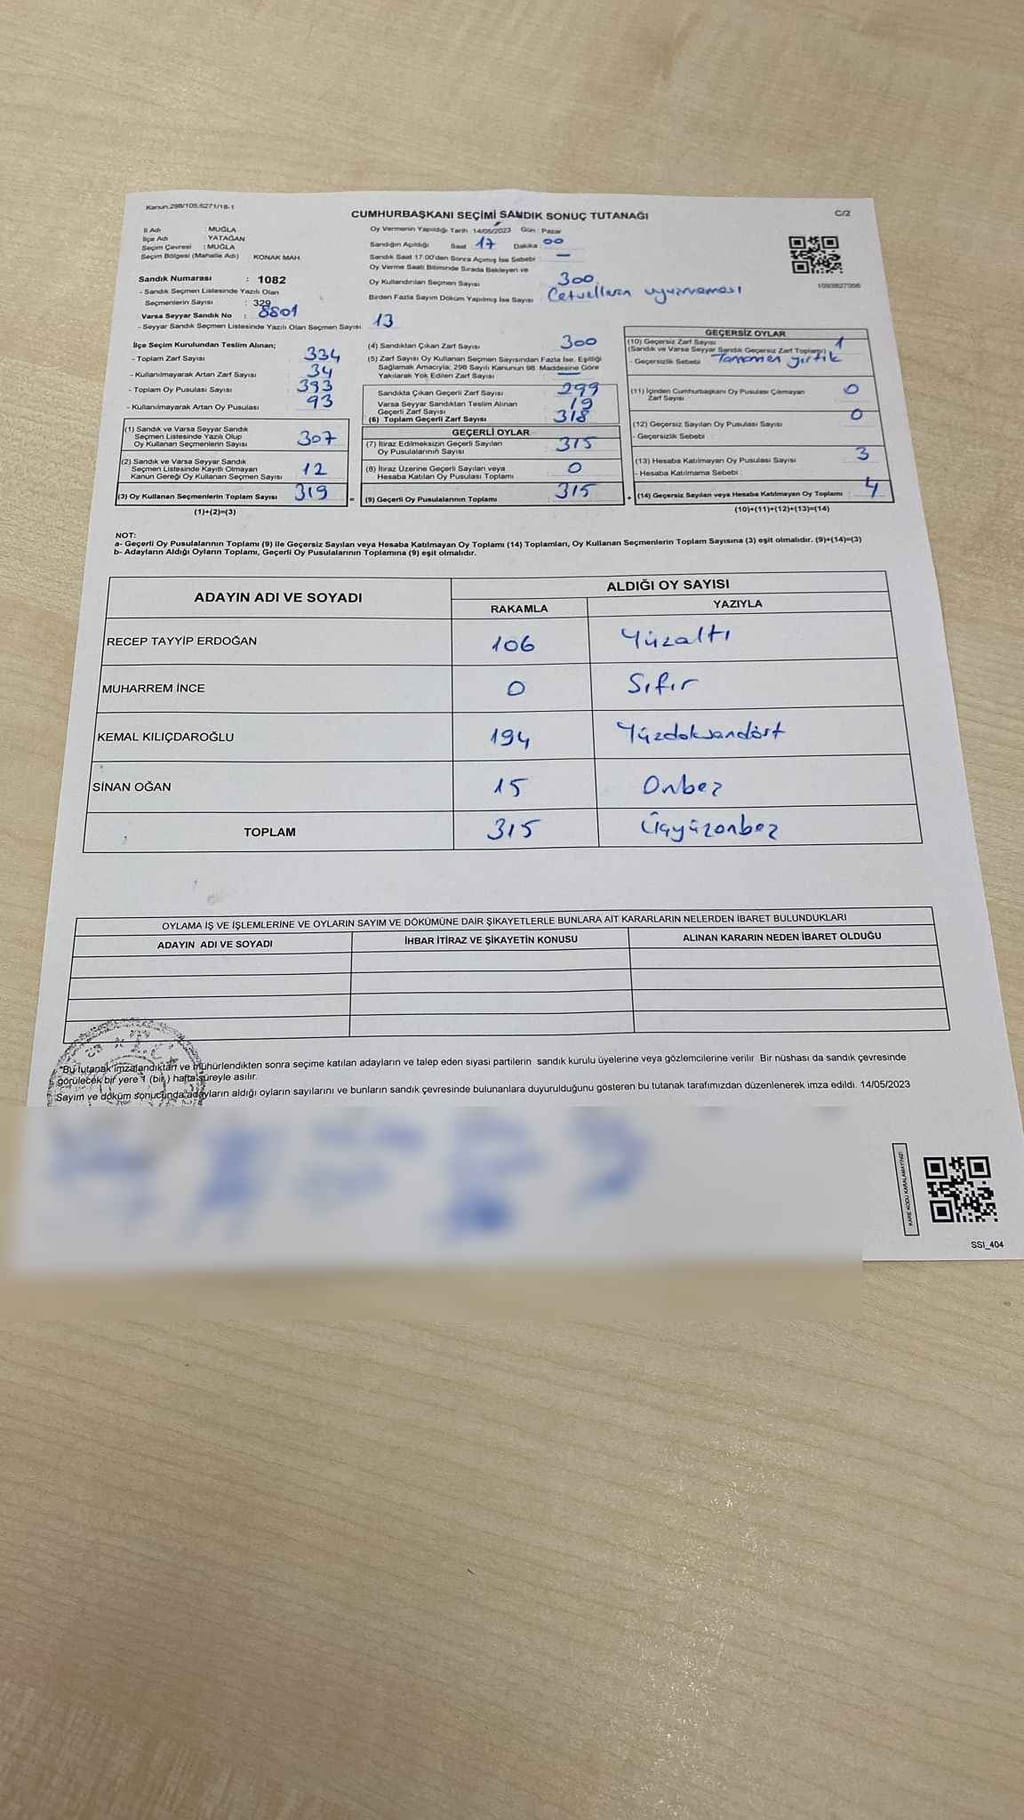 Kanun:298/105,6271/18-1
CUMHURBAŞKANI SEÇİMİ SANDIK SONUÇ TUTANAĞI
C/2
İl Adı : MUĞLA
İlçe Adı : YATAĞAN
Seçim Çevresi : MUĞLA
Seçim Bölgesi (Mahalle Adı) KONAK MAH.
Sandık Numarası : 1082
- Sandık Seçmen Listesinde Yazılı Olan
Seçmenlerin Sayısı : 329
Varsa Seyyar Sandık No : 8801
- Seyyar Sandık Seçmen Listesinde Yazılı Olan Seçmen Sayısı 13
Oy Vermenin Yapıldığı Tarih 14/05/2023 Gün: Pazar
Sandığın Açıldığı Saat 17 Dakika 00
Sandık Saat 17.00'den Sonra Açılmış İse Sebebi —
Oy Verme Saati Bitiminde Sırada Bekleyen ve
Oy Kullandırılan Seçmen Sayısı 300
Birden Fazla Sayım Döküm Yapılmış İse Sayısı Cetvellerin uyuşmaması
İlçe Seçim Kurulundan Teslim Alınan;
- Toplam Zarf Sayısı 334
- Kullanılmayarak Artan Zarf Sayısı 34
- Toplam Oy Pusulası Sayısı 393
- Kullanılmayarak Artan Oy Pusulası 93
(1) Sandık ve Varsa Seyyar Sandık
Seçmen Listesinde Yazılı Olup
Oy Kullanan Seçmenlerin Sayısı 307
(2) Sandık ve Varsa Seyyar Sandık
Seçmen Listesinde Kayıtlı Olmayan
Kanun Gereği Oy Kullanan Seçmen Sayısı 12
(3) Oy Kullanan Seçmenlerin Toplam Sayısı 319
(1)+(2)=(3)
(4) Sandıktan Çıkan Zarf Sayısı 300
(5) Zarf Sayısı Oy Kullanan Seçmen Sayısından Fazla İse, Eşitliği
Sağlamak Amacıyla; 298 Sayılı Kanunun 98. Maddesine Göre
Yakılarak Yok Edilen Zarf Sayısı —
Sandıkta Çıkan Geçerli Zarf Sayısı 299
Varsa Seyyar Sandıktan Teslim Alınan
Geçerli Zarf Sayısı 19
(6) Toplam Geçerli Zarf Sayısı 318
GEÇERLİ OYLAR
(7) İtiraz Edilmeksizin Geçerli Sayılan
Oy Pusulalarının Sayısı 315
(8) İtiraz Üzerine Geçerli Sayılan veya
Hesaba Katılan Oy Pusulası Toplamı 0
= (9) Geçerli Oy Pusulalarının Toplamı 315
GEÇERSİZ OYLAR
(10) Geçersiz Zarf Sayısı 1
(Sandık ve Varsa Seyyar Sandık Geçersiz Zarf Toplamı)
- Geçersizlik Sebebi Tamamen yırtık
(11) İçinden Cumhurbaşkanı Oy Pusulası Çıkmayan
Zarf Sayısı 0
(12) Geçersiz Sayılan Oy Pusulası Sayısı 0
- Geçersizlik Sebebi
(13) Hesaba Katılmayan Oy Pusulası Sayısı 3
- Hesaba Katılmama Sebebi
+ (14) Geçersiz Sayılan veya Hesaba Katılmayan Oy Toplamı 4
(10)+(11)+(12)+(13)=(14)
NOT:
a- Geçerli Oy Pusulalarının Toplamı (9) ile Geçersiz Sayılan veya Hesaba Katılmayan Oy Toplamı (14) Toplamları, Oy Kullanan Seçmenlerin Toplam Sayısına (3) eşit olmalıdır. (9)+(14)=(3)
b- Adayların Aldığı Oyların Toplamı, Geçerli Oy Pusulalarının Toplamına (9) eşit olmalıdır.
ADAYIN ADI VE SOYADI ALDIĞI OY SAYISI
RAKAMLA YAZIYLA
RECEP TAYYİP ERDOĞAN 106 Yüzaltı
MUHARREM İNCE 0 Sıfır
KEMAL KILIÇDAROĞLU 194 Yüzdoksandört
SİNAN OĞAN 15 Onbeş
TOPLAM 315 Üçyüzonbeş
OYLAMA İŞ VE İŞLEMLERİNE VE OYLARIN SAYIM VE DÖKÜMÜNE DAİR ŞİKAYETLERLE BUNLARA AİT KARARLARIN NELERDEN İBARET BULUNDUKLARI
ADAYIN ADI VE SOYADI İHBAR İTİRAZ VE ŞİKAYETİN KONUSU ALINAN KARARIN NEDEN İBARET OLDUĞU
*Bu tutanak imzalandıktan ve mühürlendikten sonra seçime katılan adayların ve talep eden siyasi partilerin sandık kurulu üyelerine veya gözlemcilerine verilir. Bir nüshası da sandık çevresinde
görülecek bir yere 1 (bir) hafta süreyle asılır.
Sayım ve döküm sonucunda adayların aldığı oyların sayılarını ve bunların sandık çevresinde bulunanlara duyurulduğunu gösteren bu tutanak tarafımızdan düzenlenerek imza edildi. 14/05/2023
KARE KODU KARALAMAYINIZ!
SSI_404